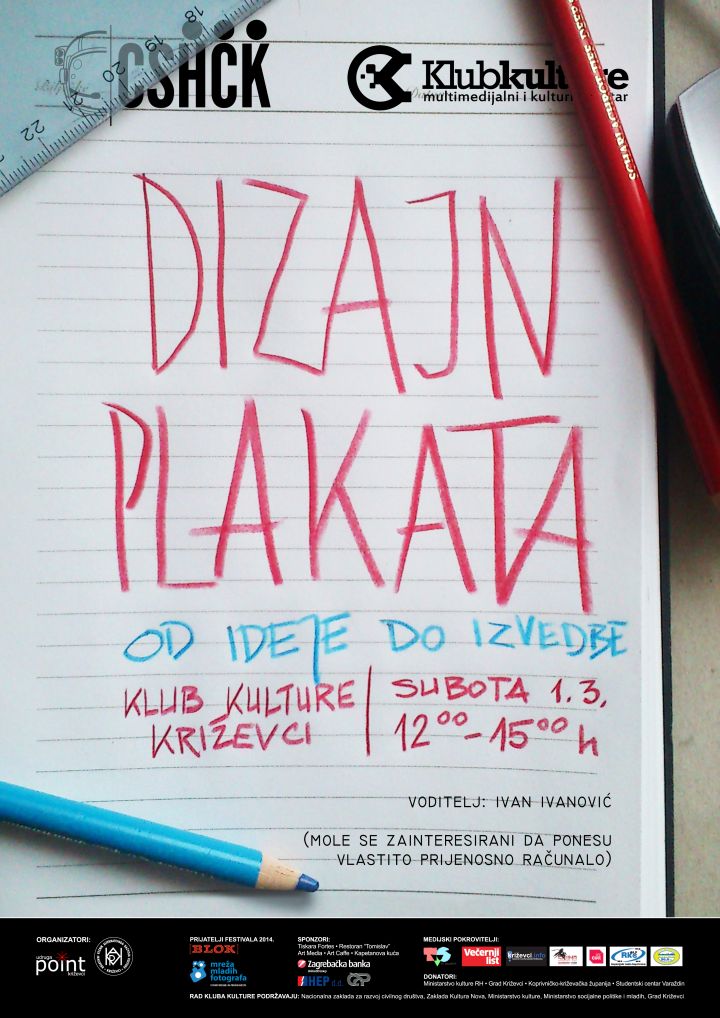 18
19
20
21
22
CSHČK
Klubkulture
multimedijalni i kulturni centar
DIZAJN
PLAKATA
OD IDEJE DO IZVEDBE
KLUB KULTURE
KRIŽEVCI
SUBOTA 1.3.
12⁰⁰-15⁰⁰ h
VODITELJ: IVAN IVANOVIĆ
(MOLE SE ZAINTERESIRANI DA PONESU
VLASTITO PRIJENOSNO RAČUNALO)
ORGANIZATORI:
udruga
point
križevci
PRIJATELJI FESTIVALA 2014.
BLOK
mreža
mladih
fotografa
SPONZORI:
Tiskara Fortes • Restoran "Tomislav"
Art Media • Art Caffe • Kapetanova kuća
Zagrebačka banka
HEP d.d.
MEDIJSKI POKROVITELJI:
Večernji
list
Križevci.info
DONATORI:
Ministarstvo kulture RH • Grad Križevci • Koprivničko-križevačka županija • Studentski centar Varaždin
RAD KLUBA KULTURE PODRŽAVAJU: Nacionalna zaklada za razvoj civilnog društva, Zaklada Kultura Nova, Ministarstvo kulture, Ministarstvo socijalne politike i mladih, Grad Križevci